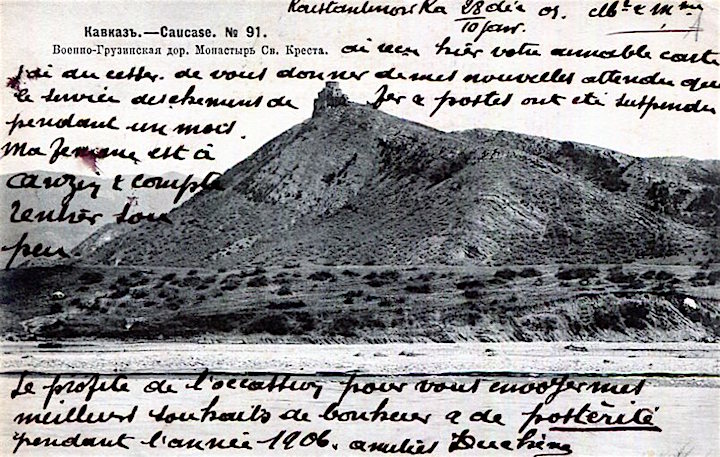 Konstantinowka 28 déc 05. Mr & Mme
10 janv.
Кавказъ.—Caucase. № 91.
Военно-Грузинская дор. Монастырь Св. Креста.
ai recu hier votre aimable carte
j'ai du cesser de vous donner de mes nouvelles attendu que
le service des chemins de fer & postes ont été suspendu
pendant un mois.
Ma femme est à
& compte
rentrer sou
peu.
Je profite de l'occassion pour vous envoyer mes
meilleurs souhaits de bonheur & de postérité
pendant l'année 1906. amitiés